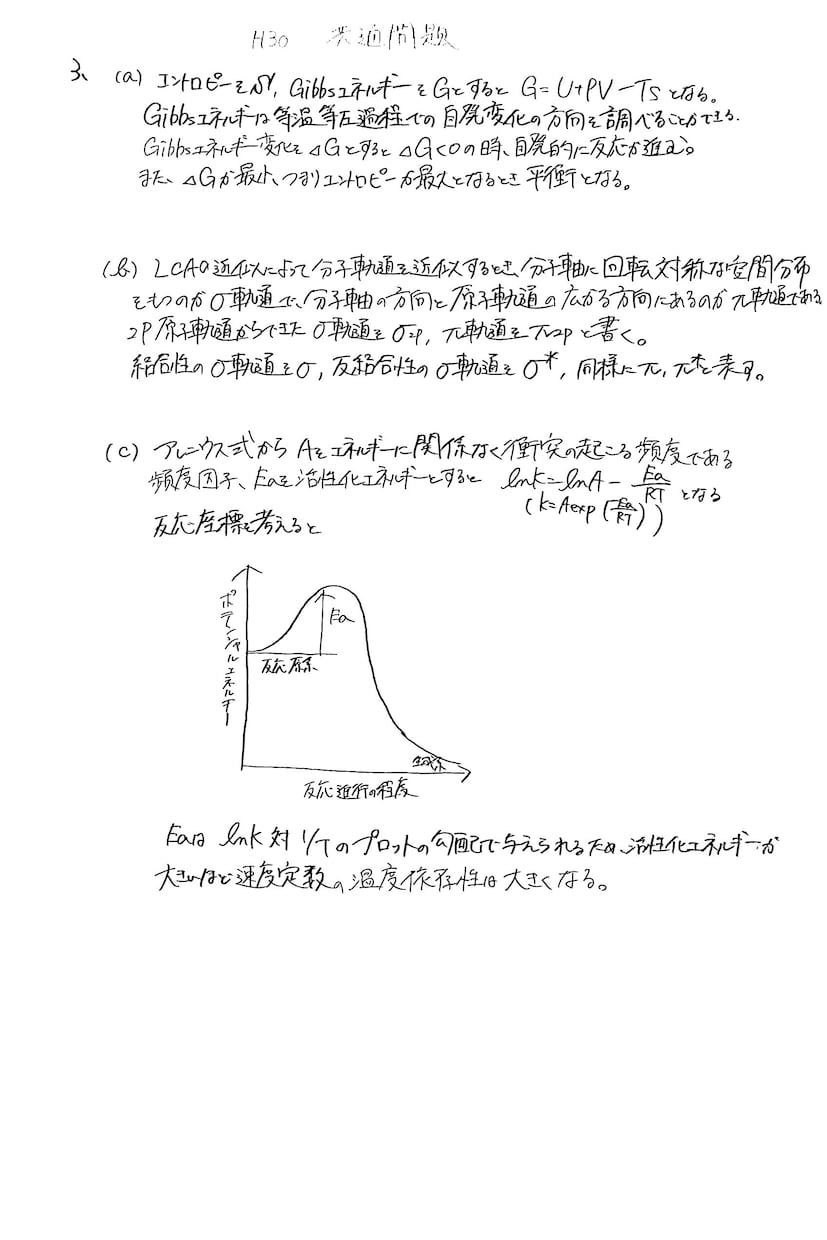 H30 共通問題
3、(a) エントロピーをS, GibbsエネルギーをGとすると G=U+PV−TSとなる。
Gibbsエネルギーは等温等圧過程での自発変化の方向を調べることができる.
Gibbsエネルギー変化をΔGとするとΔG<0の時、自発的に反応が進む。
また、ΔGが最小、つまりエントロピーが最大となるとき平衡となる。
(b) LCAO近似によって分子軌道を近似するとき、分子軸に回転対称な空間分布
をもつのがσ軌道で、分子軸の方向と原子軌道の広がる方向にあるのがπ軌道である
2P原子軌道からできたσ軌道をσ2p, π軌道をπ2pと書く。
結合性のσ軌道をσ, 反結合性のσ軌道をσ*, 同様にπ, π*と表す。
(c) アレニウス式からAをエネルギーに関係なく衝突の起こる頻度である
頻度因子、Eaを活性化エネルギーとすると lnk=lnA−Ea/RT となる
(k=Aexp(Ea/RT))
反応座標を考えると
ポテンシャルエネルギー
Ea
反応原系
生成系
反応進行の程度
Eaは lnk 対 1/Tのプロットの勾配で与えられるため、活性化エネルギーが
大きいほど速度定数の温度依存性は大きくなる。